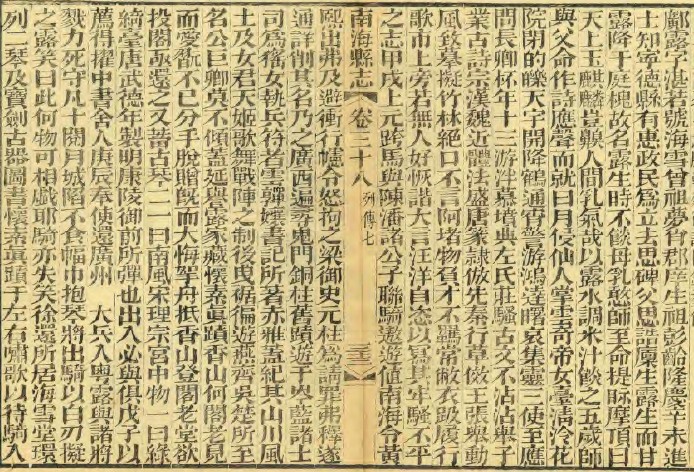 鄺露字湛若號海雪曾祖夢者郡庠生祖彭齡隆慶辛未進
士知寧德縣有惠政民爲立去思碑父思誥廩生露生而甘
露降于庭槐故名露生時不餤母乳憨師至命提脈摩頂曰
天上玉麒麟豈餤人間乳氣哉以露水調米汁飲之五歲師
與父命作詩應聲而就曰月侵仙人掌雲竒帝女臺清泠花
院閉的皪天宇開降鶴通宵警游鴻達曙哀集靈三使至應
問長卿杯年十三游泮慕墳典左氏莊騷古文不沾沾舉子
業古詩宗漢魏近體法盛唐篆隸倣先秦行草倣王張舉動
風致摹擬竹林絕口不言阿堵物負才不羈常敝衣趿履行
歌市上旁若無人好恢諧大言汪洋自恣以寫其牢騷不平
之志甲戌上元跨馬與陳潘諸公子聯騎遨遊值南海令黃
南海縣志 卷三十八 列傳七 三三
熙出弗及避衝行幰令怒拘之梁御史元柱爲請罪弗釋遂
逋詳削其名乃之廣西遍尋鬼門銅柱舊蹟遊于岑藍諸土
司爲猺女執兵符者雲嚲孃書記所著赤雅嘗紀其山川風
土及女君天姬歌舞戰陣之制後曳裾徧遊燕齊吳楚所至
名公巨卿莫不傾蓋延譽露家藏懷素眞蹟香山何閣老見
而愛翫不已分手脫贈旣而大悔拏舟抵香山登閣老堂欲
投閣亟還之又蓄古琴二一曰南風宋理宗宮中物一曰綠
綺臺唐武德年製明康陵御前所彈也出入必與俱戊子以
薦得擢中書舍人庚辰奉使還廣州 大兵入粵露與諸將
戮力死守凡十閱月城陷不食幅巾抱琴將出騎以白刃擬
之露笑曰此何物可相戲耶騎亦失笑徐還所居海雪堂環
列二琴及寶劍古器圖書懷素眞蹟于左右嘯歌以待騎入